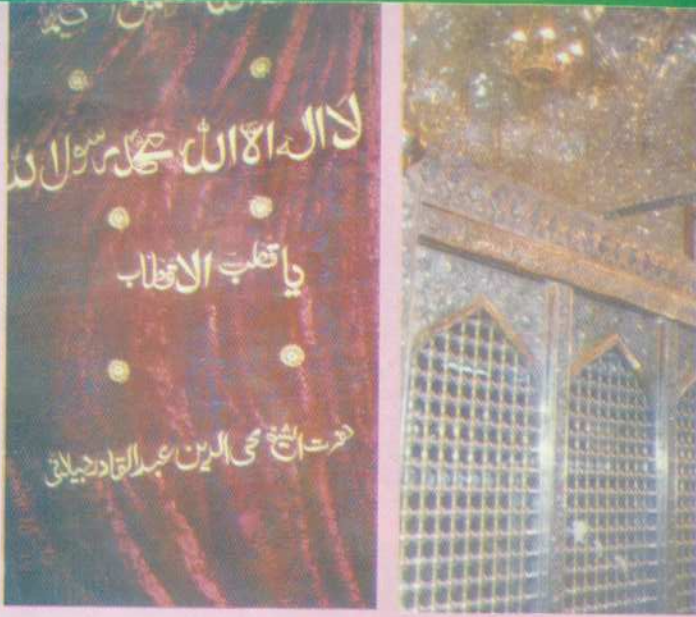 لا اله الا الله محمد رسول الله
يا قطب الاقطاب
حضرت الشيخ محى الدين عبدالقادر جيلانى